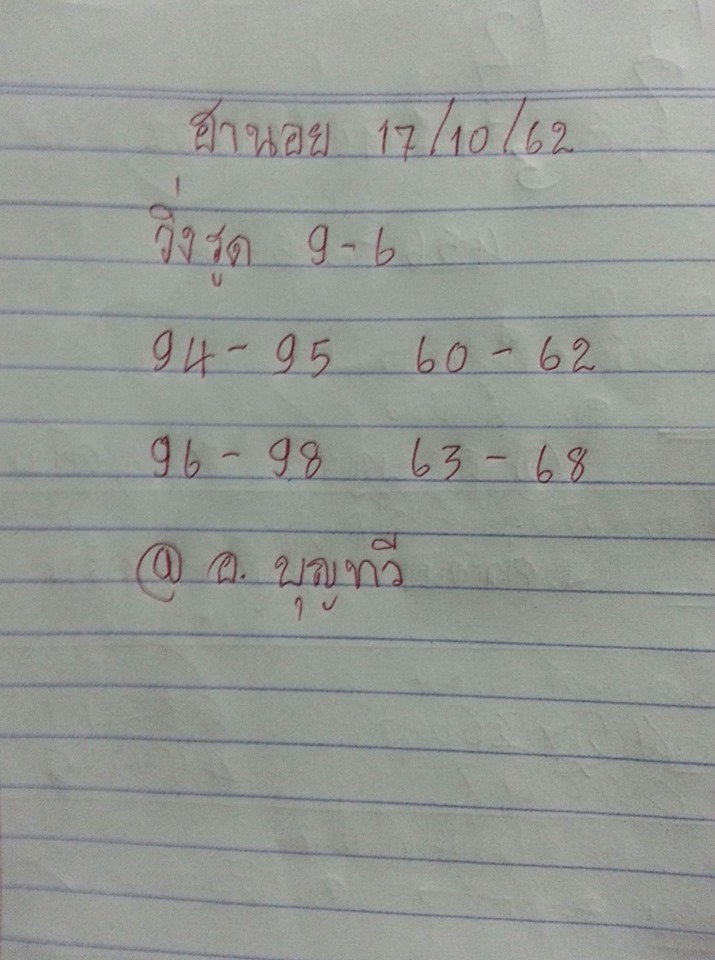 ฮานอย 17/10/62
วิ่งรูด 9-6
94-95 60-62
96-98 63-68
@ อ. บุญทวี